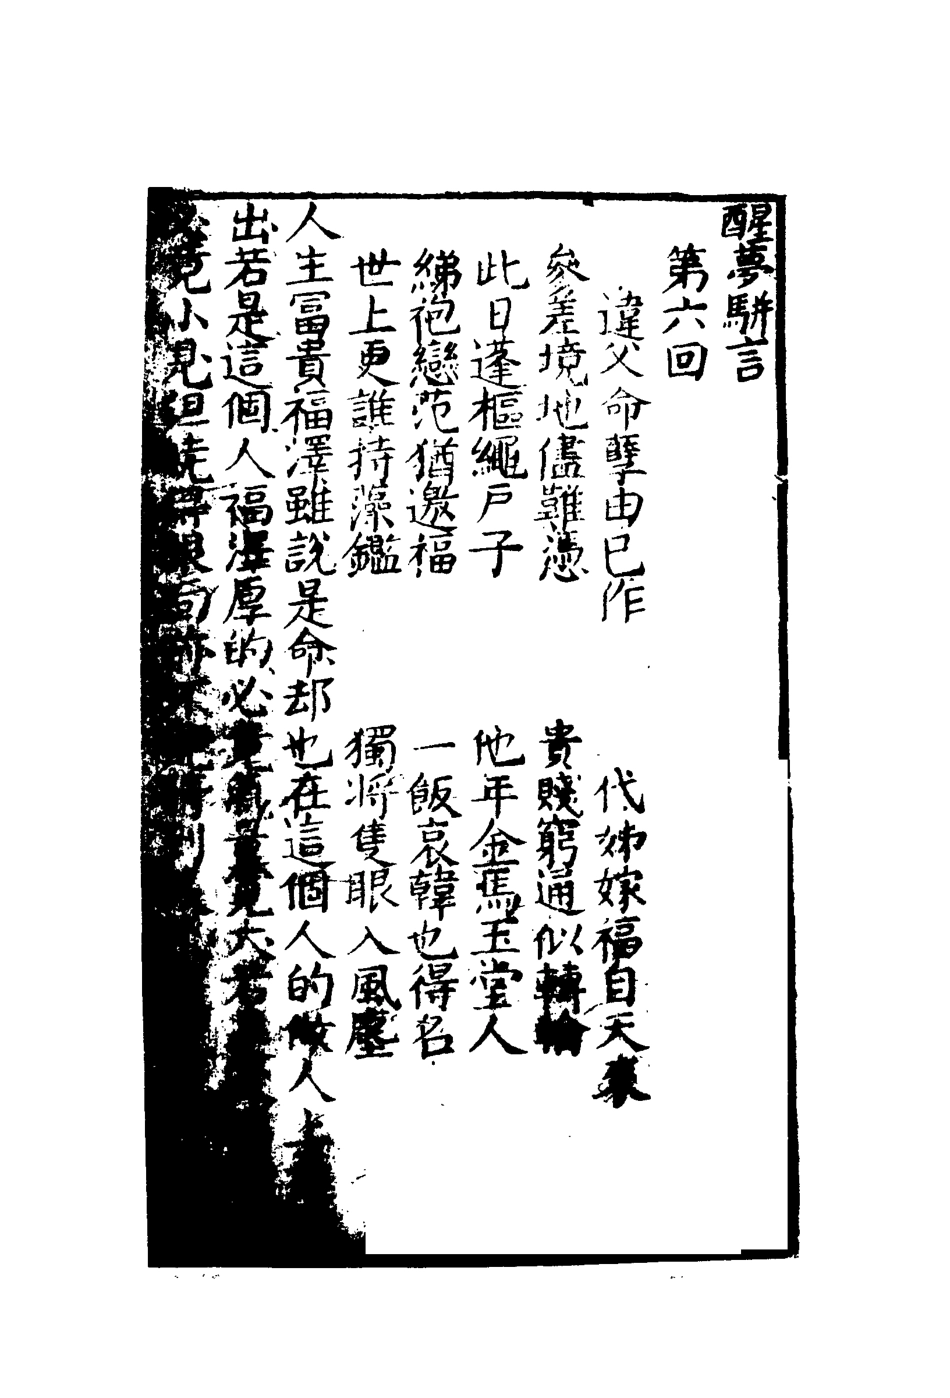 醒夢駢言
第六回
違父命孽由已作 代姊嫁福自天來
參差境地儘難憑 貴賤窮通似轉輪
此日蓬樞繩戶子 他年金馬玉堂人
綈袍戀范猶邀福 一飯哀韓也得名
世上更誰持藻鑑 獨將隻眼入風塵
人生冨貴福澤雖說是命却也在這個人的做人上
出若是這個人福澤厚的必竟見大若
竟小見但